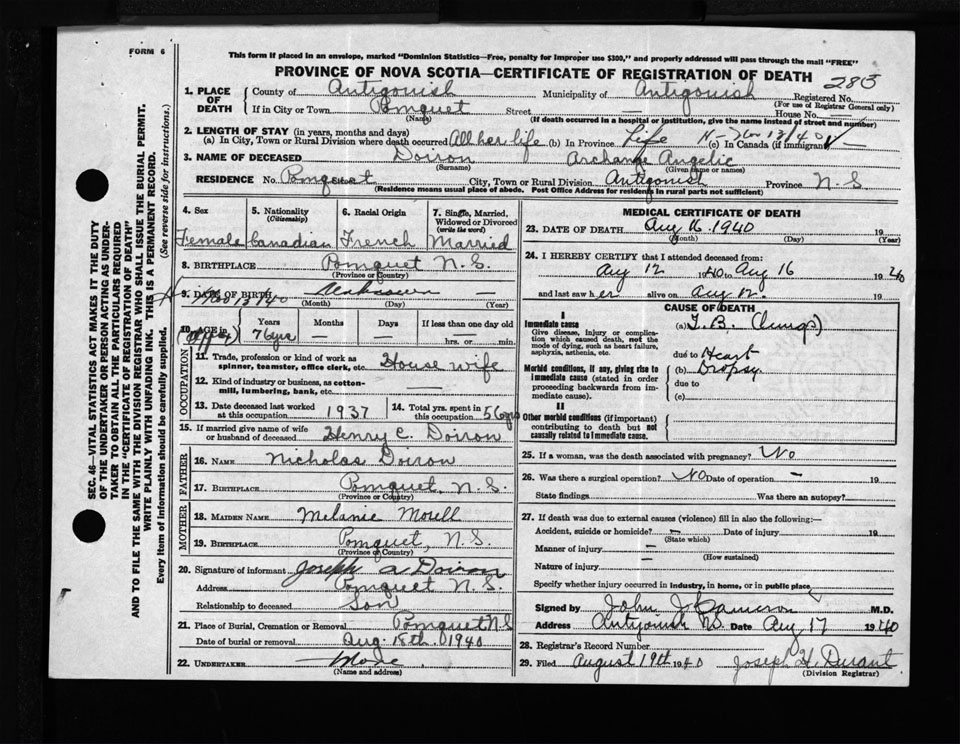 FORM 6
This form if placed in an envelope, marked "Dominion Statistics—Free, penalty for improper use $300," and properly addressed will pass through the mail "FREE"
PROVINCE OF NOVA SCOTIA—CERTIFICATE OF REGISTRATION OF DEATH
1. PLACE OF DEATH County of Antigonish Municipality of Antigonish Registered No. 283
(For use of Registrar General only)
If in City or Town Pomquet Street — House No. —
(Name) (If death occurred in a hospital or institution, give the name instead of street and number)
2. LENGTH OF STAY (in years, months and days)
(a) In City, Town or Rural Division where death occurred All her life (b) In Province Life (c) In Canada (if immigrant) —
3. NAME OF DECEASED Doiron Archange Angelic
(Surname) (Given name or names)
RESIDENCE No. Pomquet City, Town or Rural Division Antigonish Province N.S
(Residence means usual place of abode. Post Office Address for residents in rural parts not sufficient)
4. Sex 5. Nationality (Citizenship) 6. Racial Origin 7. Single, Married, Widowed or Divorced (write the word)
Female Canadian French Married
8. BIRTHPLACE Pomquet N.S.
(Province or Country)
9. DATE OF BIRTH Unknown
(Month) (Day) (Year)
10. AGE in Years Months Days If less than one day old
76 yrs — — hrs. or min.
OCCUPATION
11. Trade, profession or kind of work as spinner, teamster, office clerk, etc. House wife
12. Kind of industry or business, as cotton-mill, lumbering, bank, etc. —
13. Date deceased last worked at this occupation 1937 14. Total yrs. spent in this occupation 56 yrs
15. If married give name of wife or husband of deceased Henry C. Doiron
FATHER
16. NAME Nicholas Doiron
17. BIRTHPLACE Pomquet, N.S.
(Province or Country)
MOTHER
18. MAIDEN NAME Melanie
19. BIRTHPLACE Pomquet, N.S.
(Province or Country)
20. Signature of informant Joseph A Doiron
Address Pomquet N.S.
Relationship to deceased Son
21. Place of Burial, Cremation or Removal Pomquet N.S
Date of burial or removal Aug. 18th. 1940
22. UNDERTAKER
(Name and address)
MEDICAL CERTIFICATE OF DEATH
23. DATE OF DEATH Aug 16 1940 19
(Month) (Day) (Year)
24. I HEREBY CERTIFY that I attended deceased from:
Aug 12 1940 Aug 16 1940
and last saw her alive on Aug 12. 19
CAUSE OF DEATH
I
Immediate cause
Give disease, injury or complication which caused death, not the mode of dying, such as heart failure, asphyxia, asthenia, etc.
(a) T.B. (lungs)
due to Heart
Morbid conditions, if any, giving rise to immediate cause (stated in order proceeding backwards from immediate cause).
(b) Dropsy
due to
(c)
II
Other morbid conditions (if important) contributing to death but not causally related to immediate cause.
25. If a woman, was the death associated with pregnancy? No
26. Was there a surgical operation? No Date of operation — 19
State findings Was there an autopsy?
27. If death was due to external causes (violence) fill in also the following:—
Accident, suicide or homicide? — Date of injury 19
(State which)
Manner of injury —
(How sustained)
Nature of injury —
Specify whether injury occurred in industry, in home, or in public place
Signed by John J Cameron M.D.
Address Antigonish Date Aug 17 1940
28. Registrar's Record Number
29. Filed August 19th 1940 Joseph H. Durant
(Division Registrar)
SEC. 46—VITAL STATISTICS ACT MAKES IT THE DUTY
OF THE UNDERTAKER OR PERSON ACTING AS UNDERTAKER TO OBTAIN ALL THE PARTICULARS REQUIRED
IN THE "CERTIFICATE OF REGISTRATION OF DEATH"
AND TO FILE THE SAME WITH THE DIVISION REGISTRAR WHO SHALL ISSUE THE BURIAL PERMIT.
WRITE PLAINLY WITH UNFADING INK. THIS IS A PERMANENT RECORD.
Every item of information should be carefully supplied. (See reverse side for instructions.)